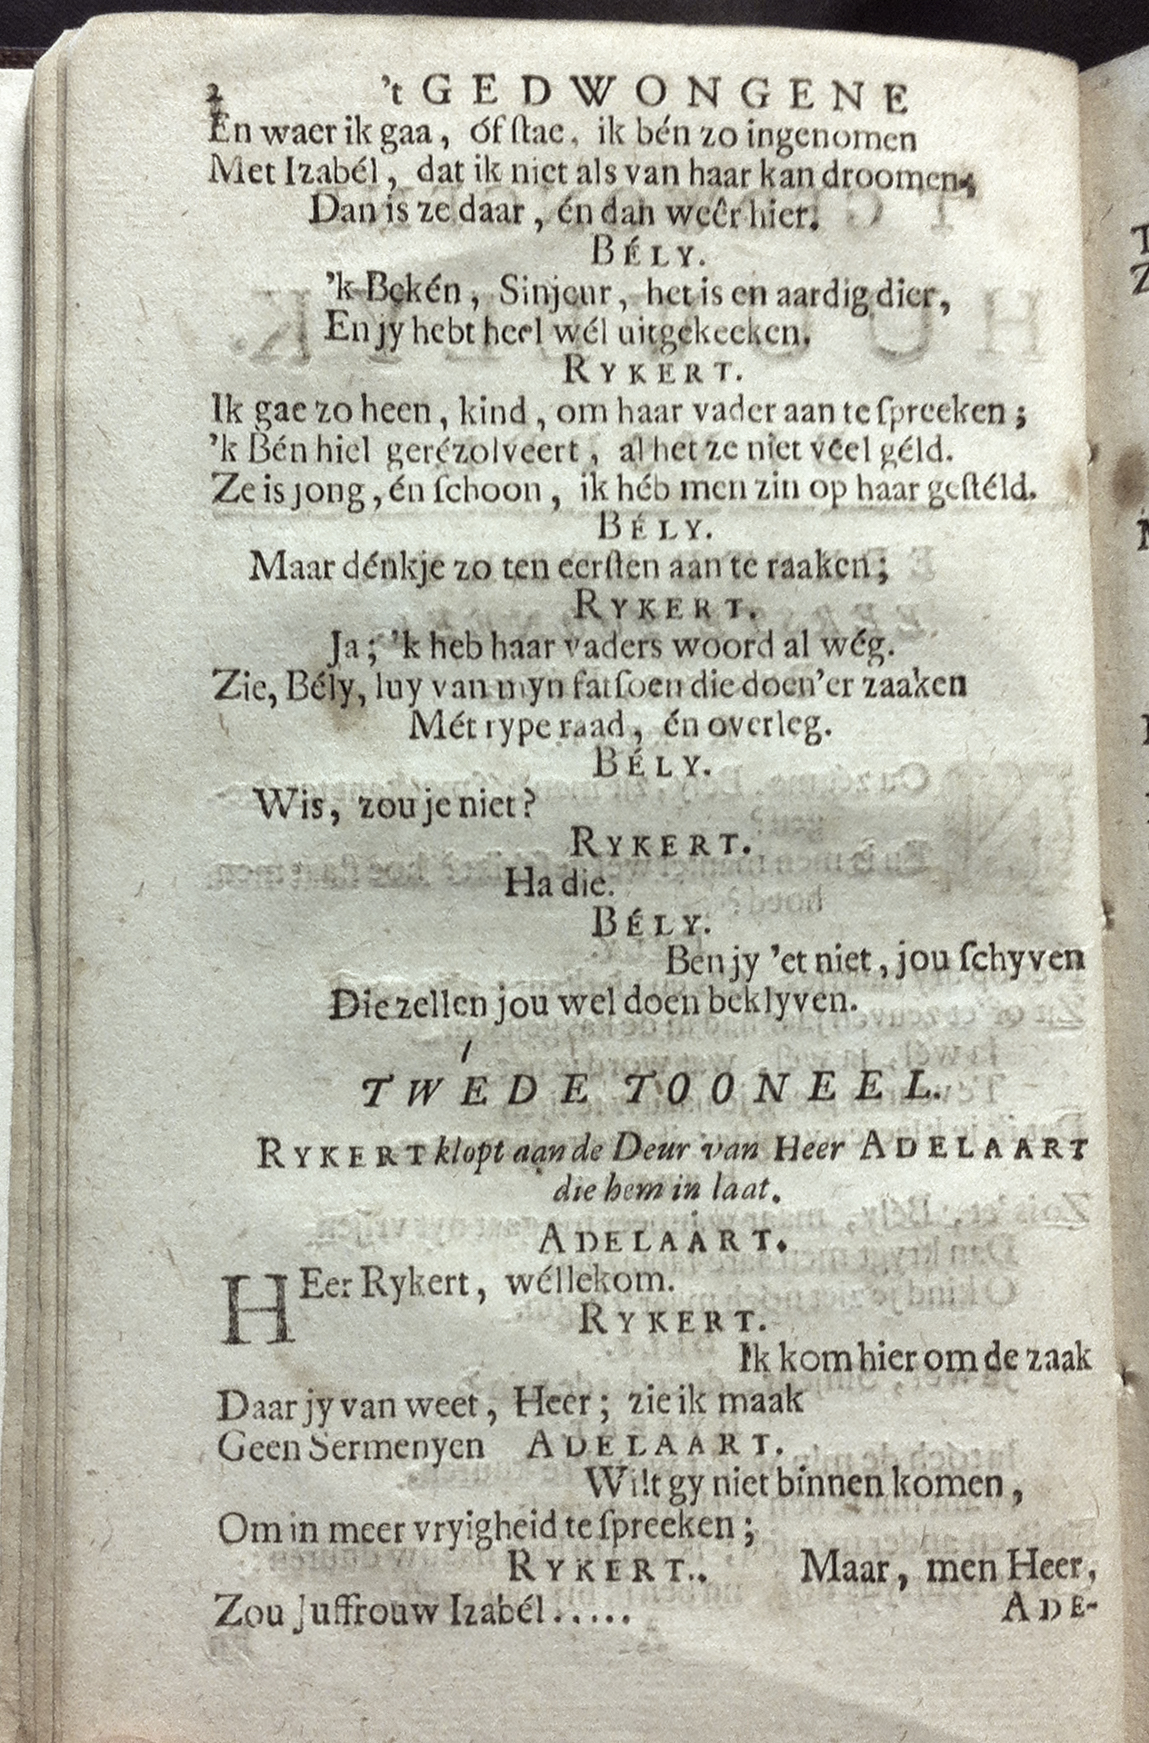 2 't GEDWONGENE
En waer ik gaa, óf ſtae, ik bén zo ingenomen
Met Izabél, dat ik niet als van haar kan droomen;
Dan is ze daar, én dan weêr hier.
BÉLY.
'k Bekén, Sinjeur, het is en aardig dier,
En jy hebt heel wél uitgekeeken.
RYKERT.
Ik gae zo heen, kind, om haar vader aan te ſpreeken;
'k Bén hiel gerézolveert, al het ze niet veel géld.
Ze is jong, én ſchoon, ik héb men zin op haar geſtéld.
BÉLY.
Maar dénkje zo ten eerſten aan te raaken;
RYKERT.
Ja; 'k heb haar vaders woord al wég.
Zie, Bély, luy van myn fatſoen die doen'er zaaken
Mét rype raad, én overleg.
BÉLY.
Wis, zou je niet?
RYKERT.
Ha die.
BÉLY.
Ben jy 'et niet, jou ſchyven
Die zellen jou wel doen beklyven.
TWÉDE TOONEEL.
RYKERT klopt aan de Deur van Heer ADELAART
die hem in laat.
ADELAART.
HEer Rykert, wéllekom.
RYKERT.
Ik kom hier om de zaak
Daar jy van weet, Heer; zie ik maak
Geen Sermenyen ADELAART.
Wilt gy niet binnen komen,
Om in meer vryigheid te ſpreeken;
RYKERT.. Maar, men Heer,
Zou Juffrouw Izabél.....
ADE-